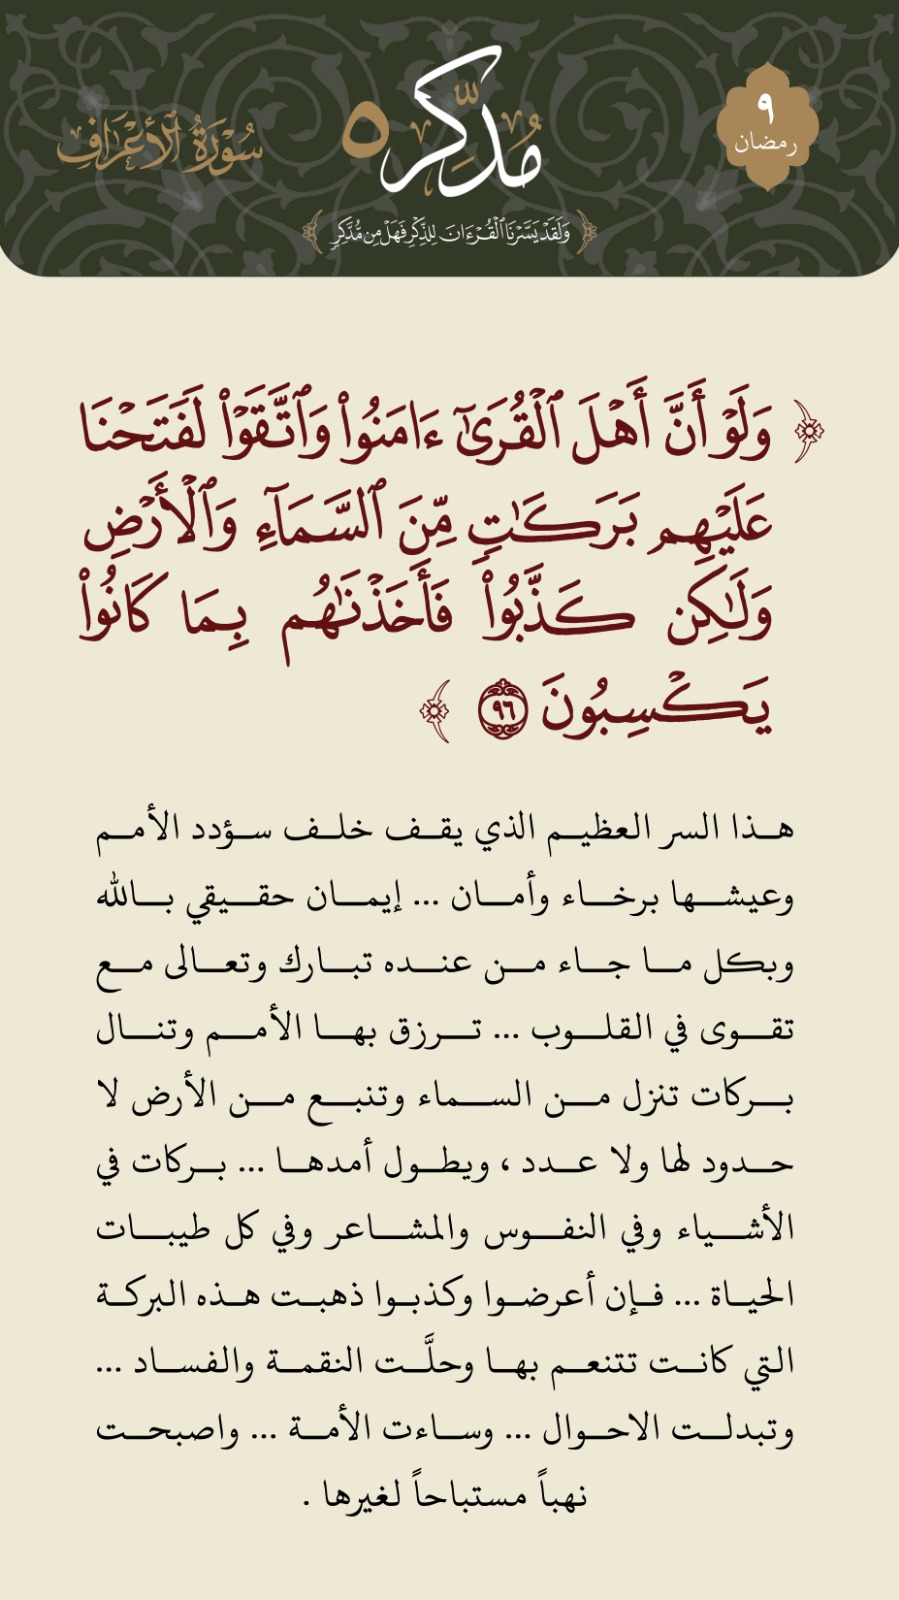 ٩
رمضان
مُدَّكِر ٥
سُورَةُ ٱلۡأَعۡرَافِ
﴿ وَلَقَدۡ يَسَّرۡنَا ٱلۡقُرۡءَانَ لِلذِّكۡرِ فَهَلۡ مِن مُّدَّكِرٖ ﴾
﴿ وَلَوۡ أَنَّ أَهۡلَ ٱلۡقُرَىٰٓ ءَامَنُواْ وَٱتَّقَوۡاْ لَفَتَحۡنَا
عَلَيۡهِم بَرَكَٰتٖ مِّنَ ٱلسَّمَآءِ وَٱلۡأَرۡضِ
وَلَٰكِن كَذَّبُواْ فَأَخَذۡنَٰهُم بِمَا كَانُواْ
يَكۡسِبُونَ ٩٦ ﴾
هذا السر العظيم الذي يقف خلف سؤدد الأمم
وعيشها برخاء وأمان ... إيمان حقيقي بالله
وبكل ما جاء من عنده تبارك وتعالى مع
تقوى في القلوب ... ترزق بها الأمم وتنال
بركات تنزل من السماء وتنبع من الأرض لا
حدود لها ولا عدد ، ويطول أمدها ... بركات في
الأشياء وفي النفوس والمشاعر وفي كل طيبات
الحياة ... فإن أعرضوا وكذبوا ذهبت هذه البركة
التي كانت تتنعم بها وحلَّت النقمة والفساد ...
وتبدلت الاحوال ... وساءت الأمة ... واصبحت
نهباً مستباحاً لغيرها .